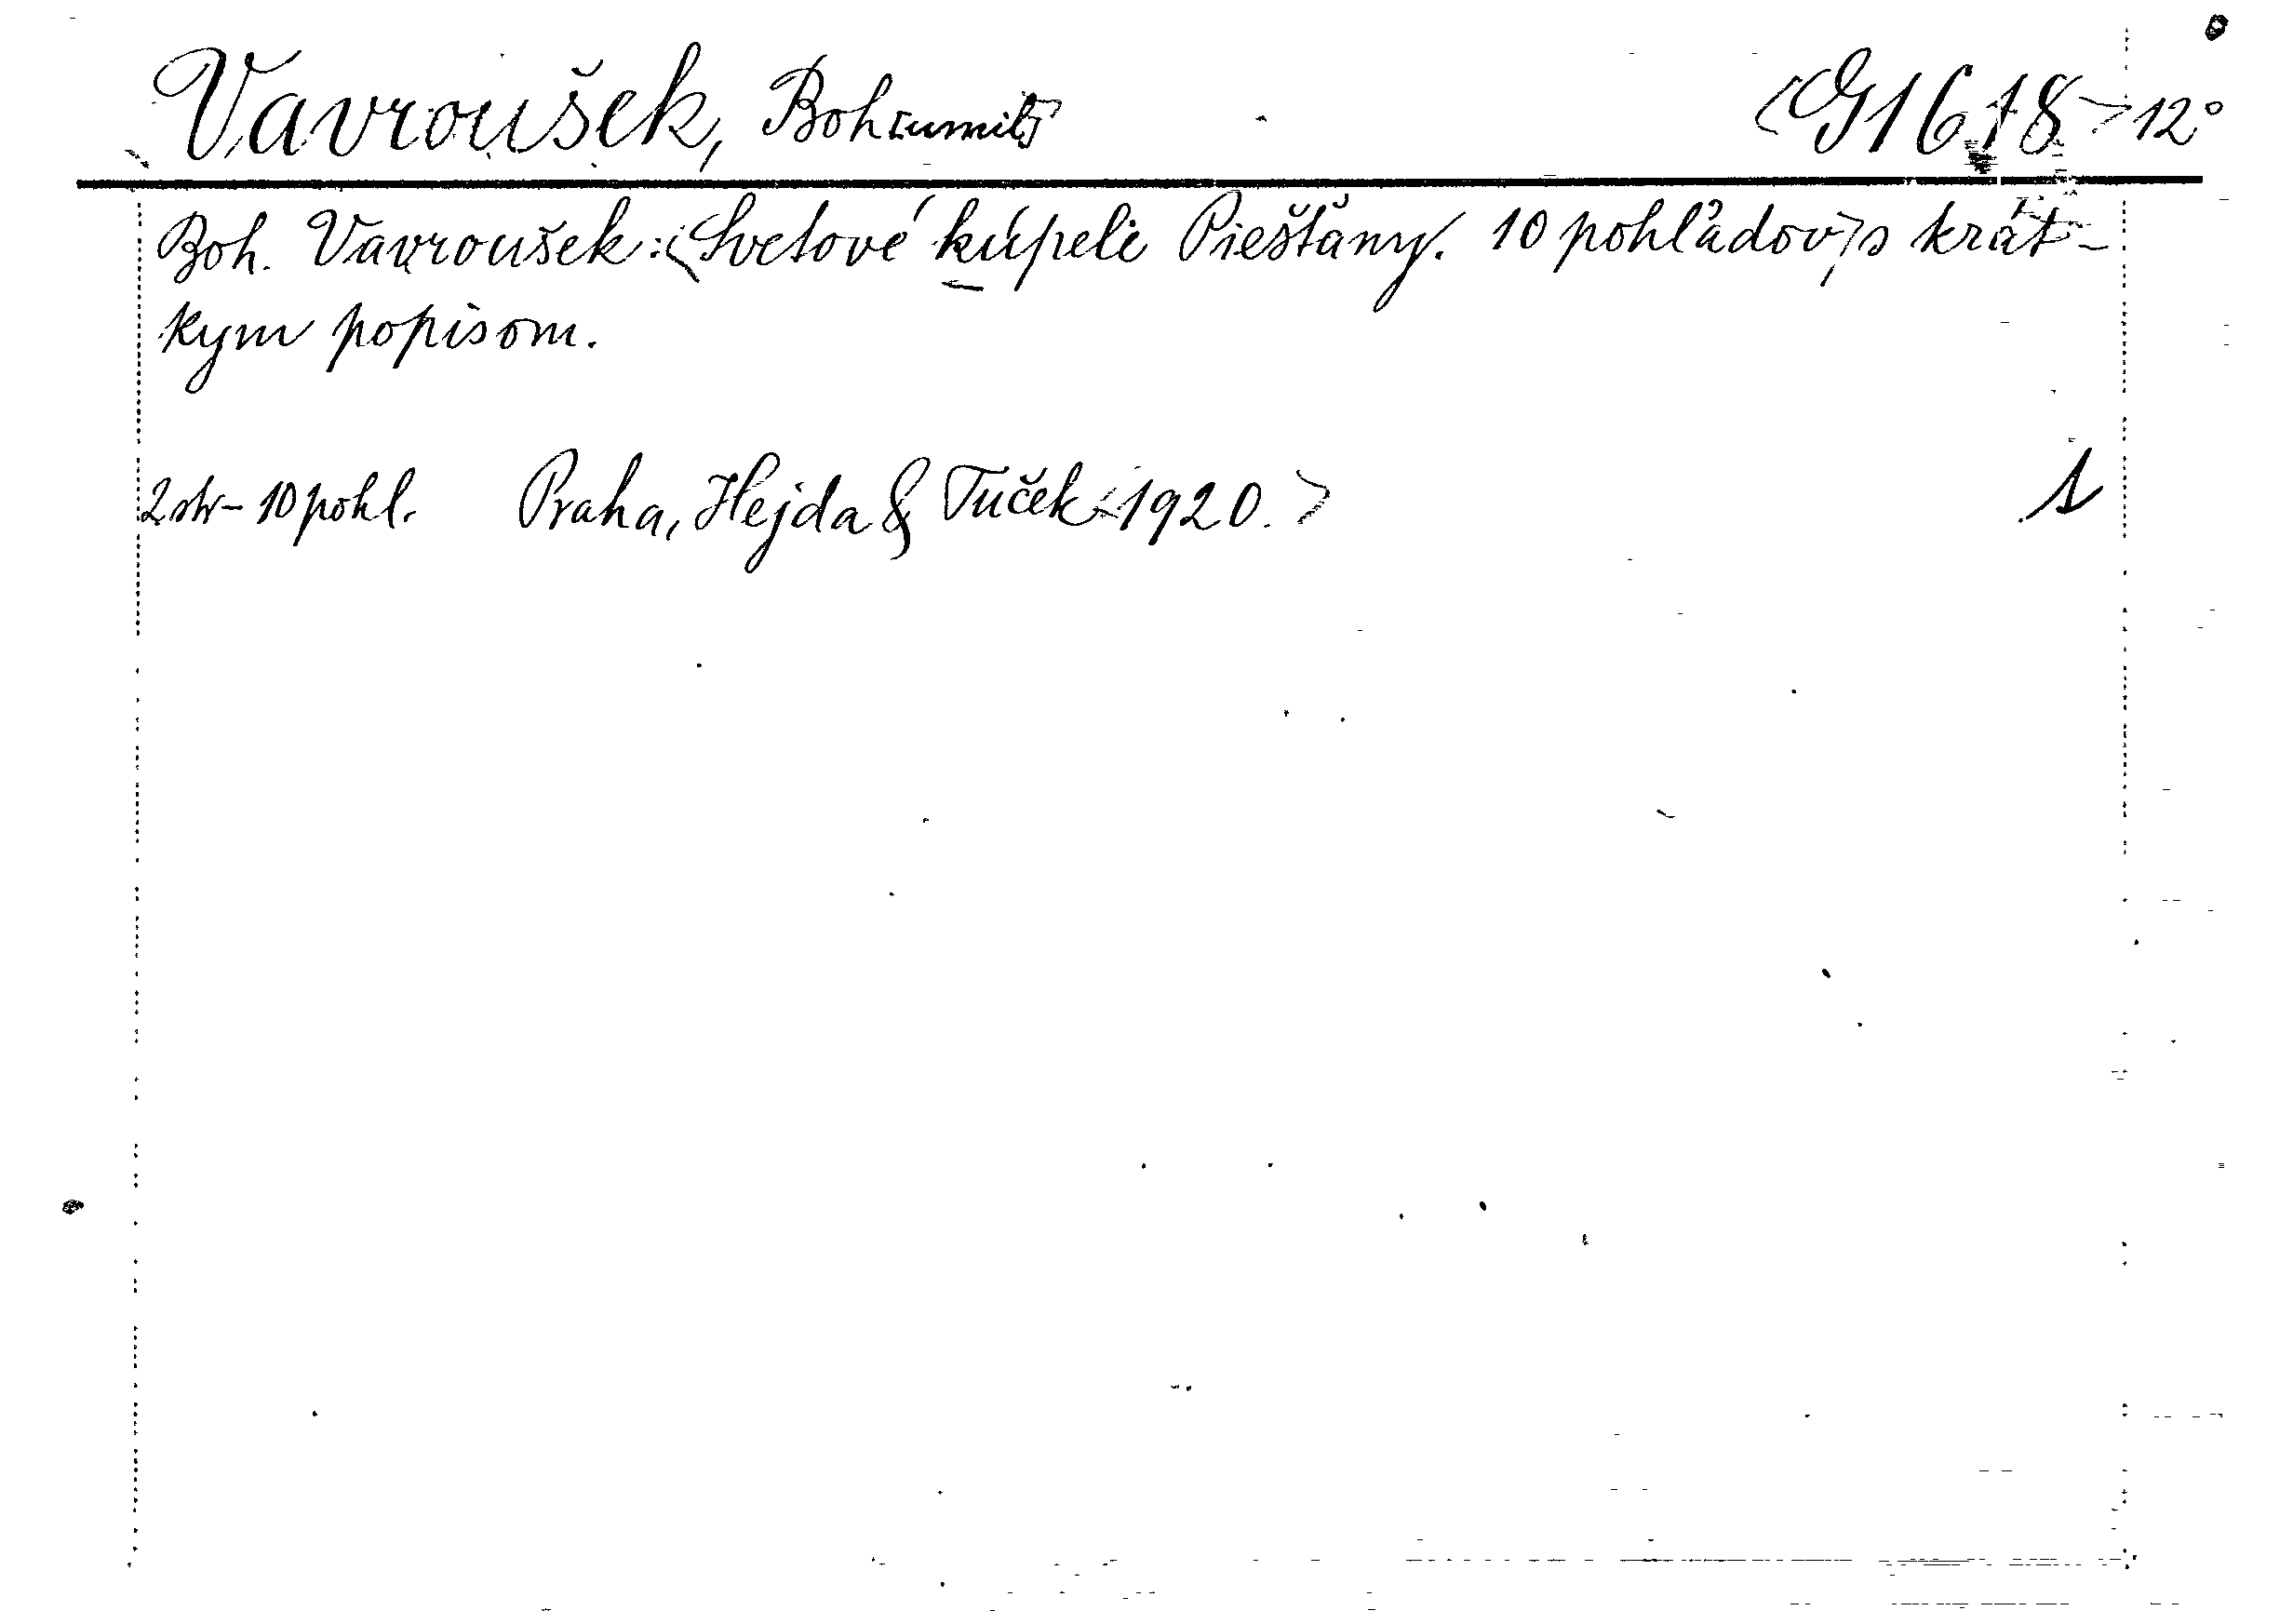 Vavroušek, Boh[umil] <G 1618> 12°
Boh. Vavroušek: <Svetové kúpele Piešťany. 10 pohľadov> s krát-
kym popisom.
2 str - 10 pohl. Praha, Hejda & Tuček <1920.> 1